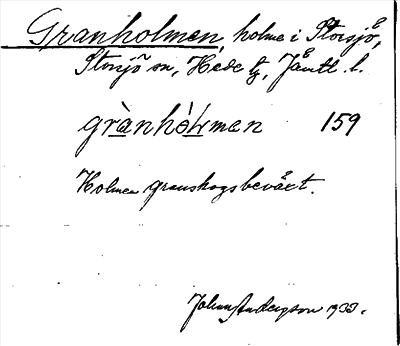 Granholmen, holme i Storsjö,
Storsjö sn, Hede tg, Jämtl. l.
grànhòLmen 159
Holmen granskogsbeväxt.
Johan Anderzson 1933.